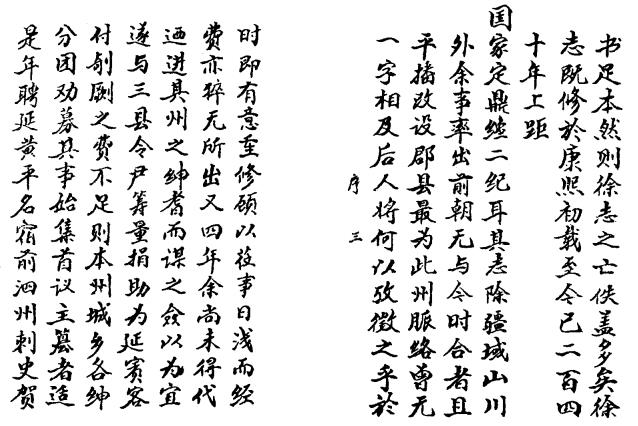 书足本然则徐志之亡佚盖多矣徐
志既修於康熙初载至今已二百四
十年上距
国
家定鼎继二纪耳其志除疆域山川
外余事率出前朝无与今时合者且
平播改设郡县最为此州脈络曾无
一字相及后人将何以攷徵之乎於
序 三
时即有意至修顾以莅事日浅而经
费亦猝无所出又四年余尚未得代
迺进其州之绅耆而谋之佥以为宜
遂与三县令尹筹量捐助为延宾客
付剞劂之费不足则本州城乡各绅
分团劝募其事始集首议主纂者适
是年聘延黄平名宿前泗州刺史贺